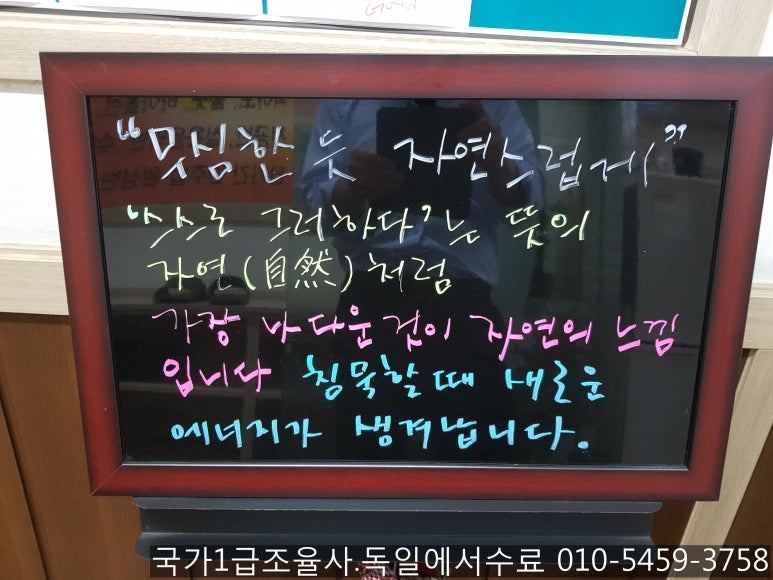 "무심한 듯 자연스럽게"
'스스로 그러하다'는 뜻의
자연(自然)처럼
가장 나다운것이 자연의 느낌
입니다 침묵할때 새로운
에너지가 생겨납니다.
국가1급조율사.독일에서수료 010-5459-3758